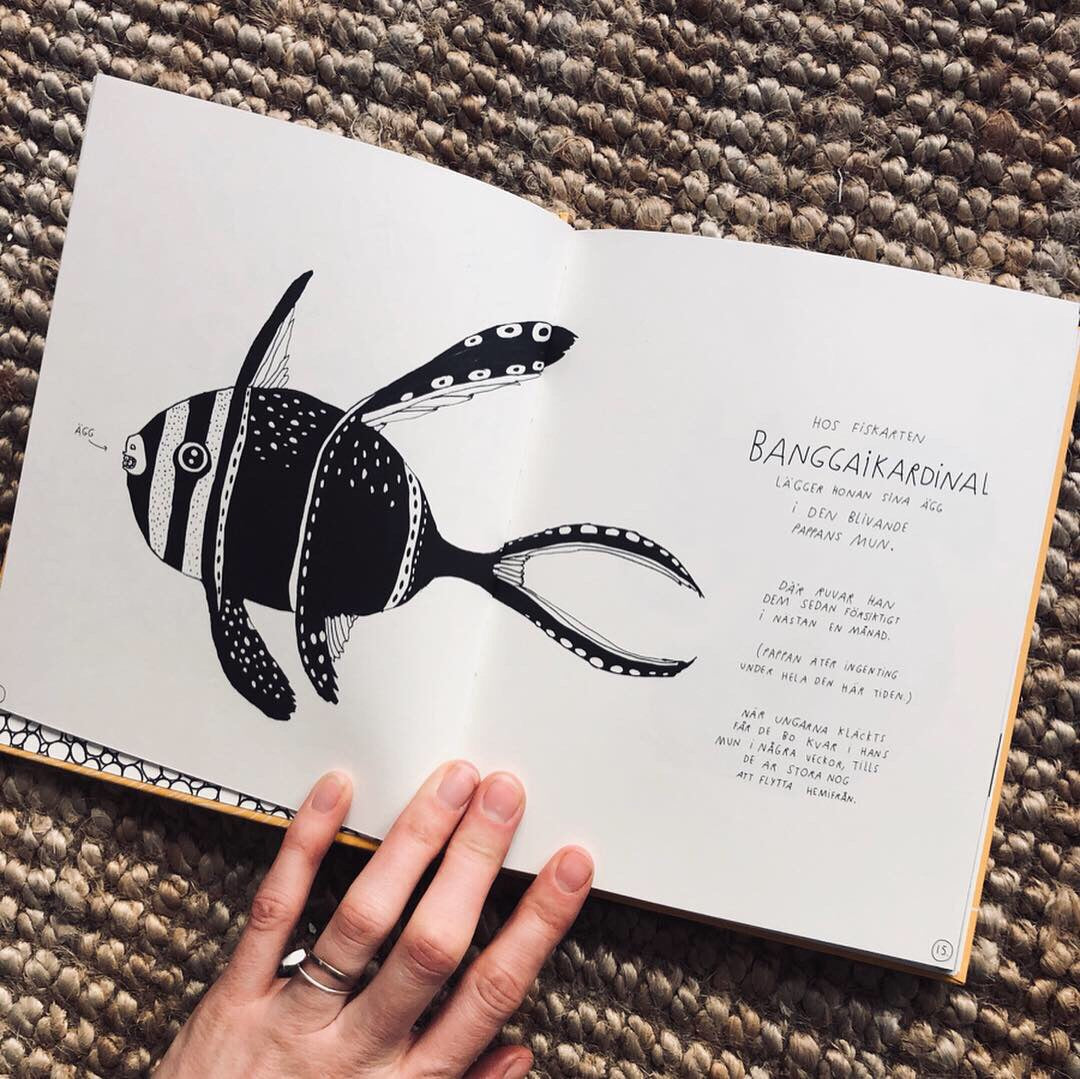 ÄGG
HOS FISKARTEN
BANGGAIKARDINAL
LÄGGER HONAN SINA ÄGG
I DEN BLIVANDE
PAPPANS MUN.
DÄR RUVAR HAN
DEM SEDAN FÖRSIKTIGT
I NÄSTAN EN MÅNAD.
(PAPPAN ÄTER INGENTING
UNDER HELA DEN HÄR TIDEN.)
NÄR UNGARNA KLÄCKTS
FÅR DE BO KVAR I HANS
MUN I NÅGRA VECKOR, TILLS
DE ÄR STORA NOG
ATT FLYTTA HEMIFRÅN.
15.